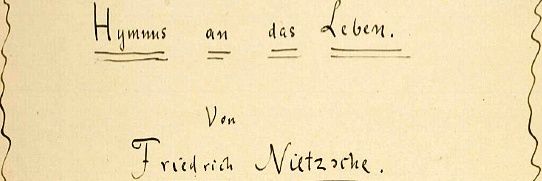 Hymnus an das Leben.
Von
Friedrich Nietzsche.